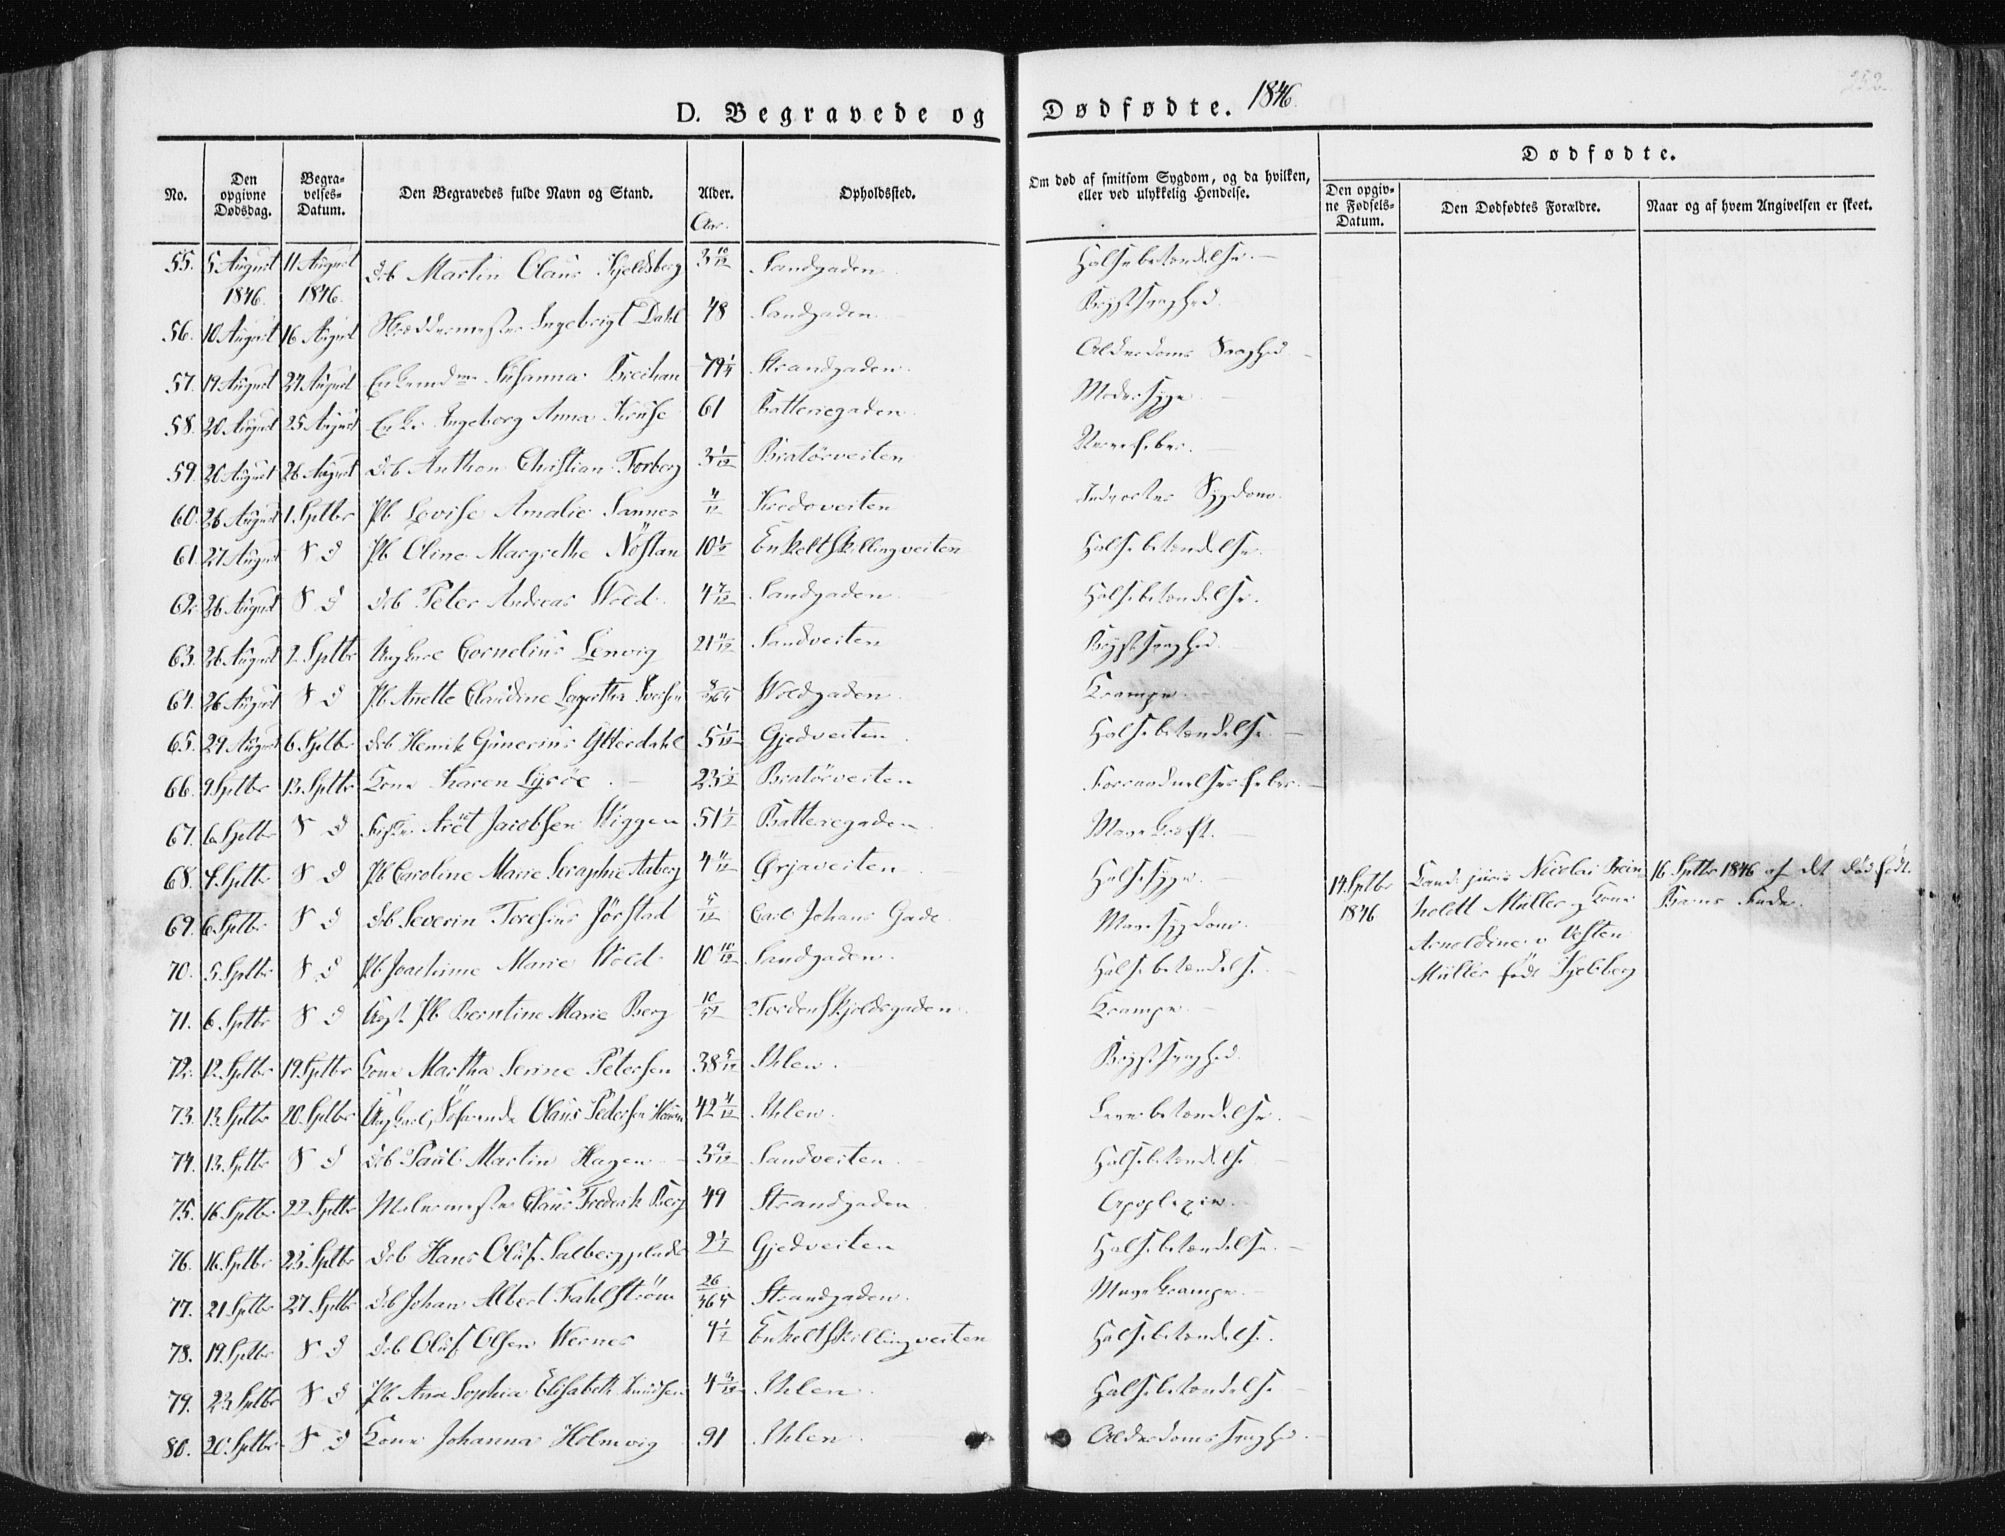 D. Begravede og Dødfødte. 1846.
No. | Den opgivne Dødsdag. | Begravelses-Datum. | Den Begravedes fulde Navn og Stand. | Alder. Aar. | Opholdssted. | Om død af smitsom Sygdom, og da hvilken, eller ved ulykkelig Hendelse. | Dødfødte. | Den opgivne Fødsels-Datum. | Den Dødfødtes Forældre. | Naar og af hvem Angivelsen er skeet.
55. 5 August 1846. 11 August 1846. Drb Martin Olaus Kjeldsberg 3 10/12 Sandgaden Halsebetændelse.
56. 10 August 16 August Skræddermester Ingebrigt Dahl 48 Sandgaden Brystsvaghed.
57. 19 August 24 August Enkemdme Susanna Breehan 79 Strandgaden. Alderdoms Svaghed
58. 20 August 25 August Enke Ingeborg Anna Kruse 61 Batteriegaden Modersyge
59. 20 August 26 August Drb Anthon Christian Forberg 3 1/12 Bratörveiten Nervefeber.
60. 26 August 1. Septbr Pb Lovise Amalie Sannes Sygdom.
61 27 August S D Pb Oline Margrethe Nöstan 10 1/2 Enkeltskillingveiten Halsebetændelse.
62. 26 August S D Drb Peter Andreas Wold. 4 7/12 Sandgaden Halsebetændelse.
63. 26 August 2. Septbr Ungkarl Cornelius Lenvig 21 11/12 Sandveiten Brystsvaghed
64. 26 August S D Pb Anette Claudine 8/365 Woldgaden. Krampe
65. 29 August 6. Septbr Drb Henrik Gunerius Ytterdahl 5 1/12 Gjedveiten Halsebetændelse
66. 9. Septbr 13. Septbr Kone Karen Lysöe 23 1/2 Bratörveiten Forraadnelsesfeber.
67. 6. Septbr S D Aret Jacobsen Wiggen 51 1/2 Batteriegaden Mavekræft.
68. 4. Septbr S D Pb Caroline Marie Seraphie Aaberg 4 11/12 Ørjaveiten Halsesyge.
14. Septbr 1846 Cand: juris Nicolai Reinholdt Müller og Kone Arnoldine v Vesten Müller født Kjelsberg 16. Septbr 1846 af det dødfødt. Barns Fader.
69. 6. Septbr S D Drb Severin Toresius Jörstad 5/12 Carl Johans Gade. Mavesygdom.
70. 5. Septbr S D Pb Joachime Marie Wold 10 10/12 Sandgaden. Halsebetændelse
71. 6 Septbr S D Uægt. Pb Berntine Marie Berg Tordenskjoldsgaden. Krampe
72. 12. Septbr 19. Septbr Kone Martha Serine Petersen 38 5/12 Ihlen. Brystsvaghed
73. 13. Septbr 20. Septbr Ungkarl, Söfarende Olaus Pedersen 42 11/12 Ihlen. Leverbetændelse.
74. 13. Septbr S D Drb Paul Martin Hagen 3 9/12 Sandveiten Halsebetændelse
75. 16. Septbr 22. Septbr Malermester Claus Frederik Berg 49 Strandgaden Apoplexie.
76. 16. Septbr 23. Septbr Drb Hans Oluf Salbergplads 2 1/2 Gjedveiten Halsebetændelse.
77. 21 Septbr 27. Septbr Drb Johan Albert Fahlström 26/365 Strandgaden. Mavekrampe.
78. 19. Septbr S D Drb Oluf Olsen Wernes 4 1/2 Enkeltskillingveiten Halsebetændelse.
79. 23. Septbr S D Pb Ane Sophia Elisabeth Knudsen Ihlen Halsebetændelse
80. 20. Septbr S D Kone Johanna Holmvig 91 Ihlen Alderdomssvaghed.